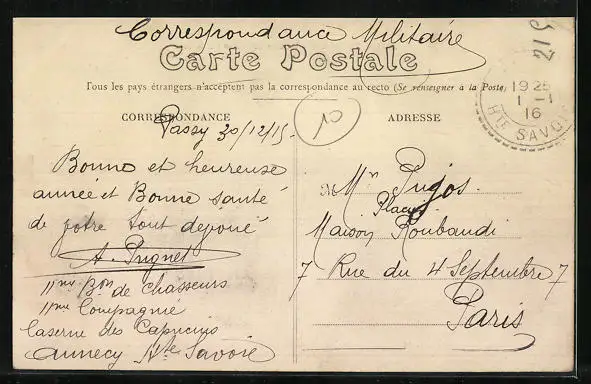 Correspondance Militaire
Carte Postale
Tous les pays étrangers n'acceptent pas la correspondance au recto (Se renseigner à la Poste)
CORRESPONDANCE
Passy 30/12/15.
Bonne et heureuse
année et Bonne santé
de votre tout dévoué
A. Pugnet
11me Bon de chasseurs
11me Compagnie
Caserne des Capucins
Annecy Hte Savoie
C1
ADRESSE
Mr Pujos.
Placeur
Maison Roubaudi
7 Rue du 4 Septembre 7
Paris
19 25
1 - 1
16
HTE SAVOIE
512